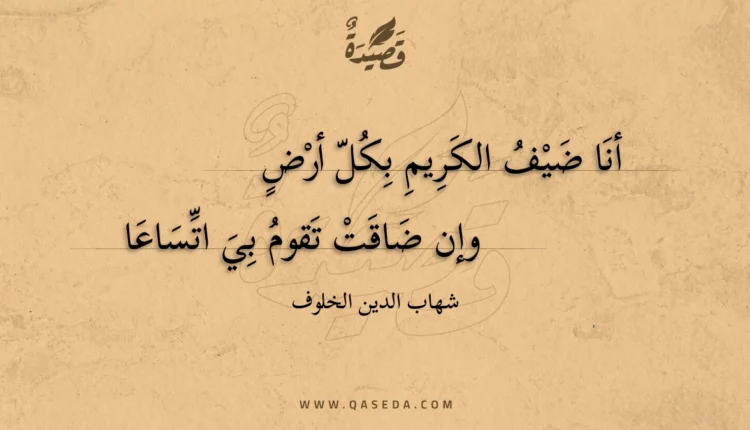 قَصِيْدَةٌ
أنَا ضَيْفُ الكَرِيمِ بِكُلّ أرْضٍ
وإن ضَاقَتْ تَقومُ بِيَ اتِّسَاعَا
شهاب الدين الخلوف
WWW.QASEDA.COM